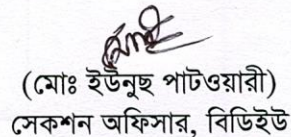 (মোঃ ইউনুছ পাটওয়ারী)
সেকশন অফিসার, বিডিইউ